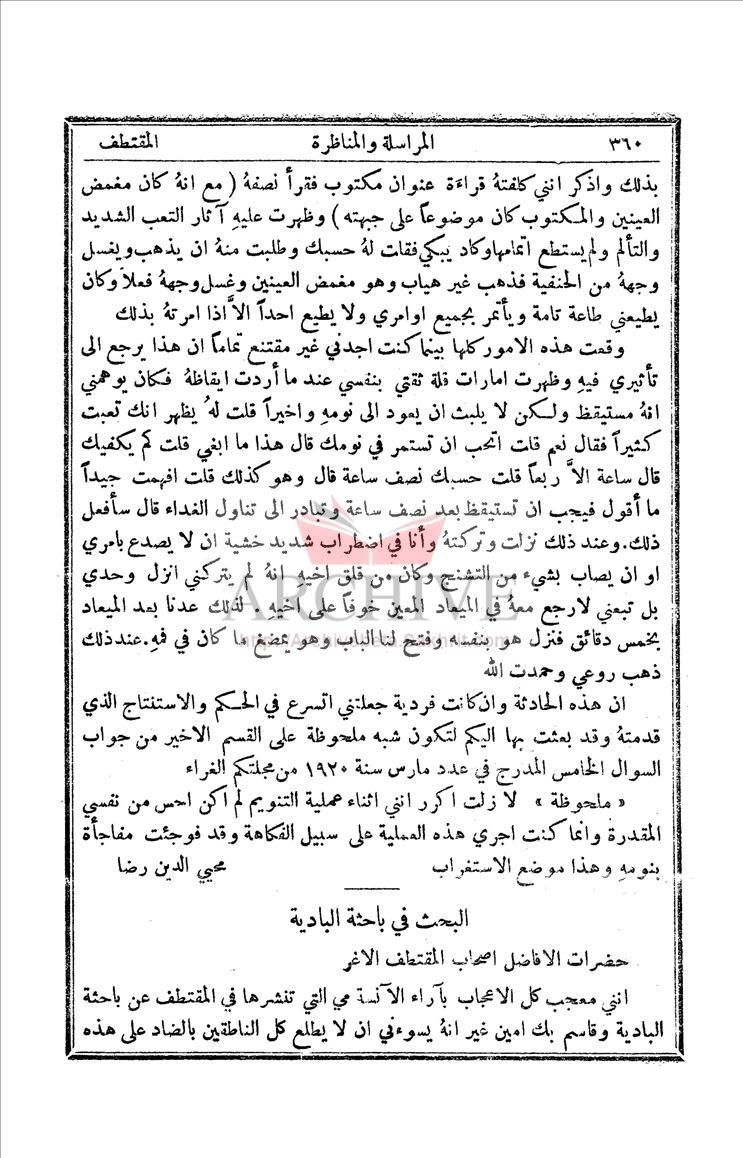 ٣٦٠ المراسلة والمناظرة المقتطف
بذلك واذكر انني كلفتهُ قراءَة عنوان مكتوب فقرأ نصفهُ ( مع انهُ كان مغمض
العينين والمكتوب كان موضوعاً على جبهته ) وظهرت عليهِ آثار التعب الشديد
والتألم ولم يستطع اتمامها وكاد يبكي فقلت لهُ حسبك وطلبت منهُ ان يذهب ويغسل
وجههُ من الحنفية فذهب غير هياب وهو مغمض العينين وغسل وجههُ فعلاً وكان
يطيعني طاعة تامة ويأتمر بجميع اوامري ولا يطيع احداً الاَّ اذا امرتهُ بذلك
وقعت هذه الامور كلها بينما كنت اجدني غير مقتنع تماماً ان هذا يرجع الى
تأثيري فيهِ وظهرت امارات قلة ثقتي بنفسي عند ما أردت ايقاظهُ فكان يوهمني
انهُ مستيقظ ولكن لا يلبث ان يعود الى نومهِ واخيراً قلت لهُ يظهر انك تعبت
كثيراً فقال نعم قلت اتحب ان تستمر في نومك قال هذا ما ابغي قلت كم يكفيك
قال ساعة الاَّ ربعاً قلت حسبك نصف ساعة قال وهو كذلك قلت افهمت جيداً
ما أقول فيجب ان تستيقظ بعد نصف ساعة وتبادر الى تناول الغداء قال سأفعل
ذلك. وعند ذلك نزلت وتركتهُ وأنا في اضطراب شديد خشية ان لا يصدع بامري
او ان يصاب بشيء من التشنج وكان من قلق اخيهِ انهُ لم يتركني انزل وحدي
بل تبعني لارجع معهُ في الميعاد المعين خوفاً على اخيهِ . لذلك عدنا بعد الميعاد
بخمس دقائق فنزل هو بنفسه وفتح لنا الباب وهو يمضغ ما كان في فمهِ. عند ذلك
ذهب روعي وحمدت الله
ان هذه الحادثة وان كانت فردية جعلتني اتسرع في الحكم والاستنتاج الذي
قدمتهُ وقد بعثت بها اليكم لتكون شبه ملحوظة على القسم الاخير من جواب
السوال الخامس المدرج في عدد مارس سنة ١٩٢٠ من مجلتكم الغراء
« ملحوظة » لا زلت اكرر انني اثناء عملية التنويم لم اكن احس من نفسي
المقدرة وانما كنت اجري هذه العملية على سبيل الفكاهة وقد فوجئت مفاجأة
بنومهِ وهذا موضع الاستغراب محيي الدين رضا
البحث في باحثة البادية
حضرات الافاضل اصحاب المقتطف الاغر
انني معجب كل الاعجاب بآراء الآنسة مي التي تنشرها في المقتطف عن باحثة
البادية وقاسم بك امين غير انهُ يسوءني ان لا يطلع كل الناطقين بالضاد على هذه
ARCHIVE